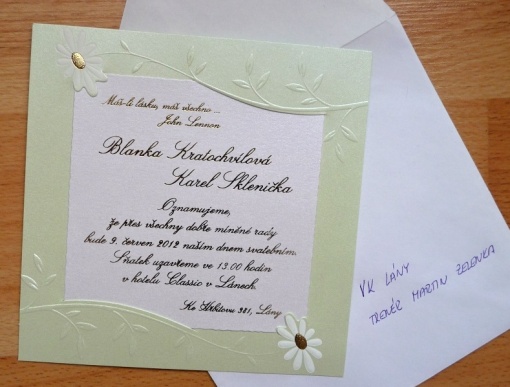 Máš-li lásku, máš všechno...
John Lennon
Blanka Kratochvílová
Karel Sklenička
Oznamujeme,
že přes všechny dobře míněné rady
bude 9. červen 2012 naším dnem svatebním.
Sňatek uzavřeme ve 13.00 hodin
v hotelu Classic v Lánech.
Ke Hřbitovu 381, Lány
VK LÁNY
TRENÉR MARTIN ZELENKA